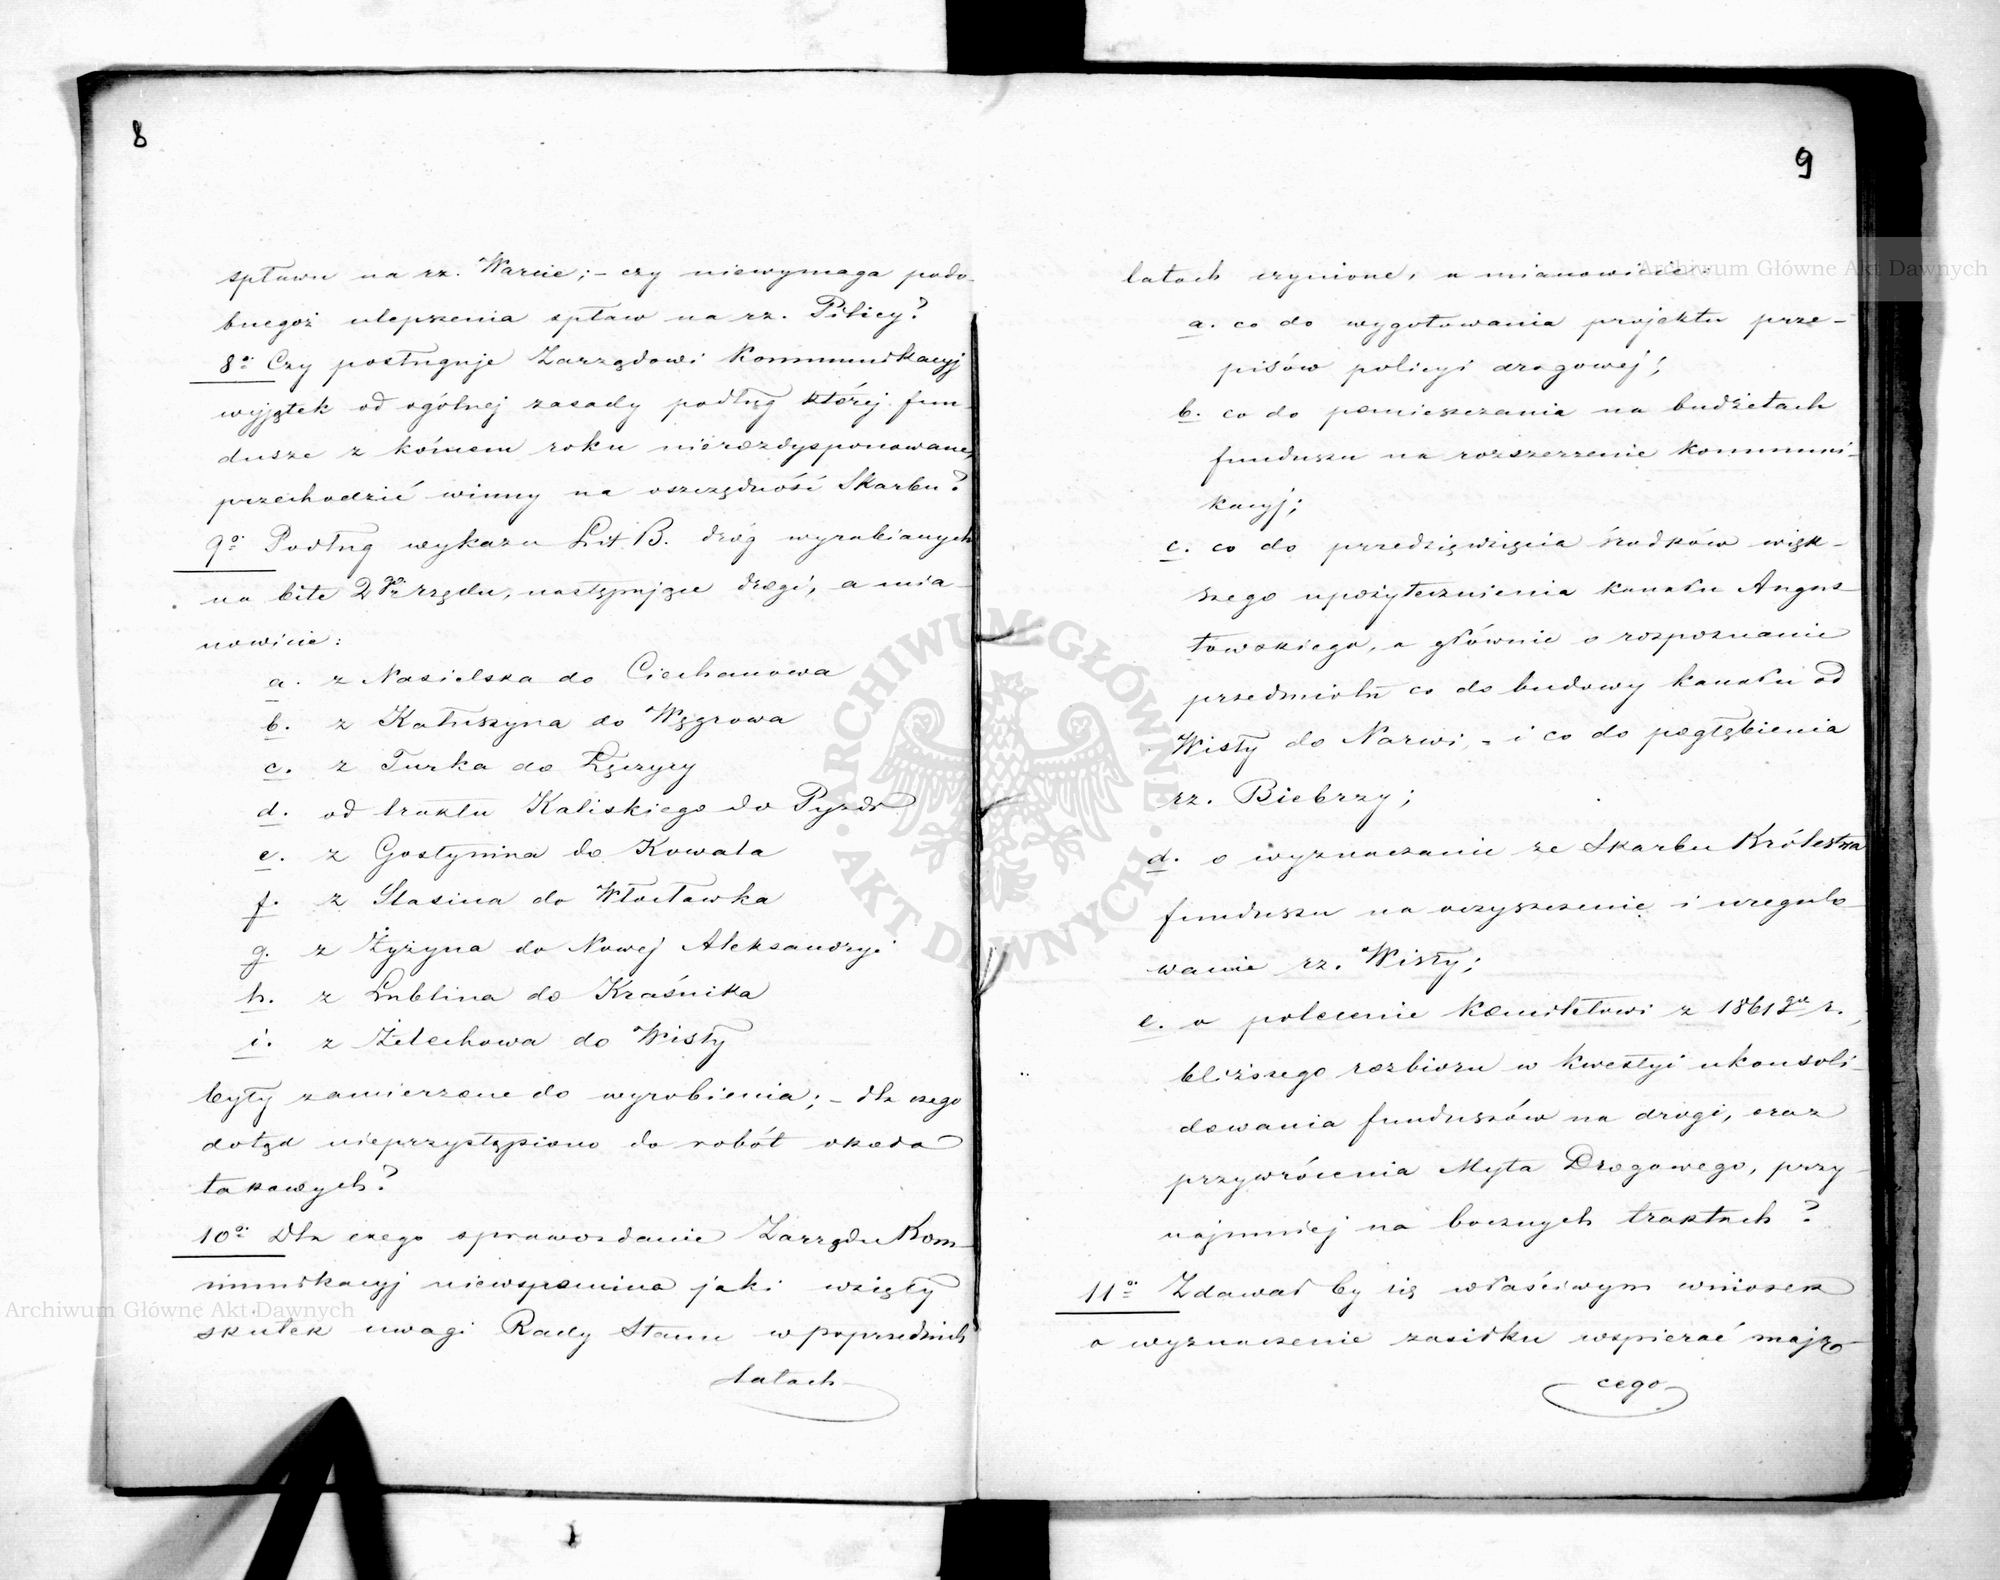 8
spławu na rz. Warcie; – czy niewymaga podo-
bnegoż ulepszenia spław na rz. Pilicy?
8o: Czy posługuje Zarządowi Kommunikacyj
wyjątek od ogólnej zasady podług której fun-
dusze z końcem roku nierozdysponowane,
przechodzić winny na oszczędność Skarbu?
9o: Podług wykazu Lit. B. dróg wyrabianych
na bite 2go rzędu, następujące drogi, a mia-
nowicie:
a. z Nasielska do Ciechanowa
b. z Kałuszyna do Węgrowa
c. z Turka do Łęczycy
d. od traktu Kaliskiego do Pyzdr
e. z Gostynina do Kowala
f. z Slasina do Włocławka
g. z Żyżyna do Nowej Aleksandryi
h. z Lublina do Kraśnika
i. z Żelechowa do Wisły
były zamierzone do wyrobienia; – dla czego
dotąd nieprzystąpiono do robót okoɫo
takowych?
10o: Dla czego sprawozdanie Zarządu Kom-
munikacyj niewspomina jaki wzięły
skutek uwagi Rady Stanu w poprzednich
latach
9
latach czynione, a mianowicie:
a. co do wygotowania projektu prze-
pisów policyi drogowej;
b. co do pomieszczania na budżetach
funduszu na rozszerzenie kommuni-
kacyj;
c. co do przedsięwzięcia środków więk-
szego upożytecznienia kanału Augus-
towskiego, a głównie o rozpoznanie
przedmiotu co do budowy kanału od
Wisły do Narwi, – i co do pogłębienia
rz. Biebrzy;
d. o wyznaczanie ze Skarbu Królestwa
funduszu na oczyszczenie i uregulo-
wanie rz. Wisły;
e. o polecenie Komitetowi z 1861go r.,
bliższego rozbioru w kwestyi ukonsoli-
dowania funduszów na drogi, oraz
przywrócenia Myta Drogowego, przy-
najmniej na bocznych traktach?
11o: Zdawał by się właściwym wniosek
o wyznaczenie zasiłku wspierać mają-
cego
ARCHIWUM GŁÓWNE AKT DAWNYCH
Archiwum Główne Akt Dawnych
Archiwum Główne Akt Dawnych